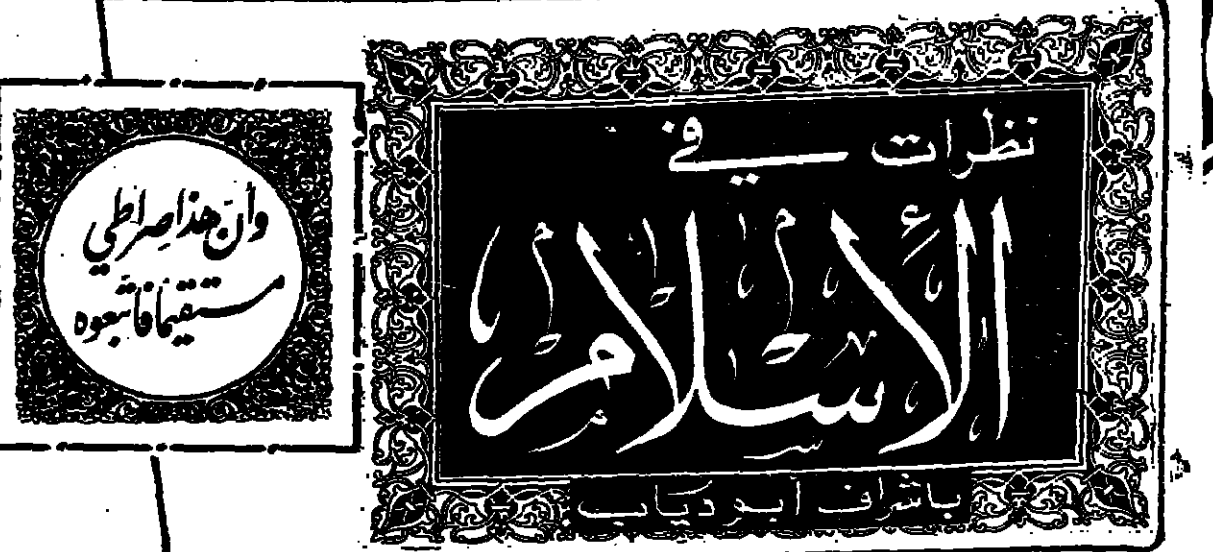 نظرات في
الإسلام
باشراف ابو دياب
وأن هذا صراطي
مستقيما فاتبعوه